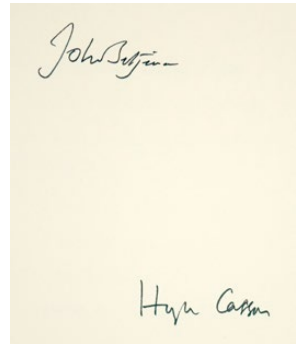 John Betjeman
Hugh Casson